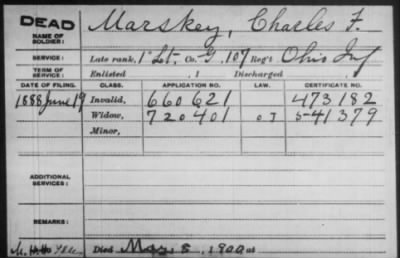 DEAD
NAME OF SOLDIER: Marskey, Charles F.
SERVICE: Late rank, 1" Lt, Co. G, 107 Reg't Ohio Inf
TERM OF SERVICE: Enlisted , 1 Discharged , 1
DATE OF FILING. CLASS. APPLICATION NO. LAW. CERTIFICATE NO.
1888 June 19 Invalid, 660621 473182
Widow, 720401 O I 541379
Minor,
ADDITIONAL SERVICES:
REMARKS:
Died 8, 1900, at